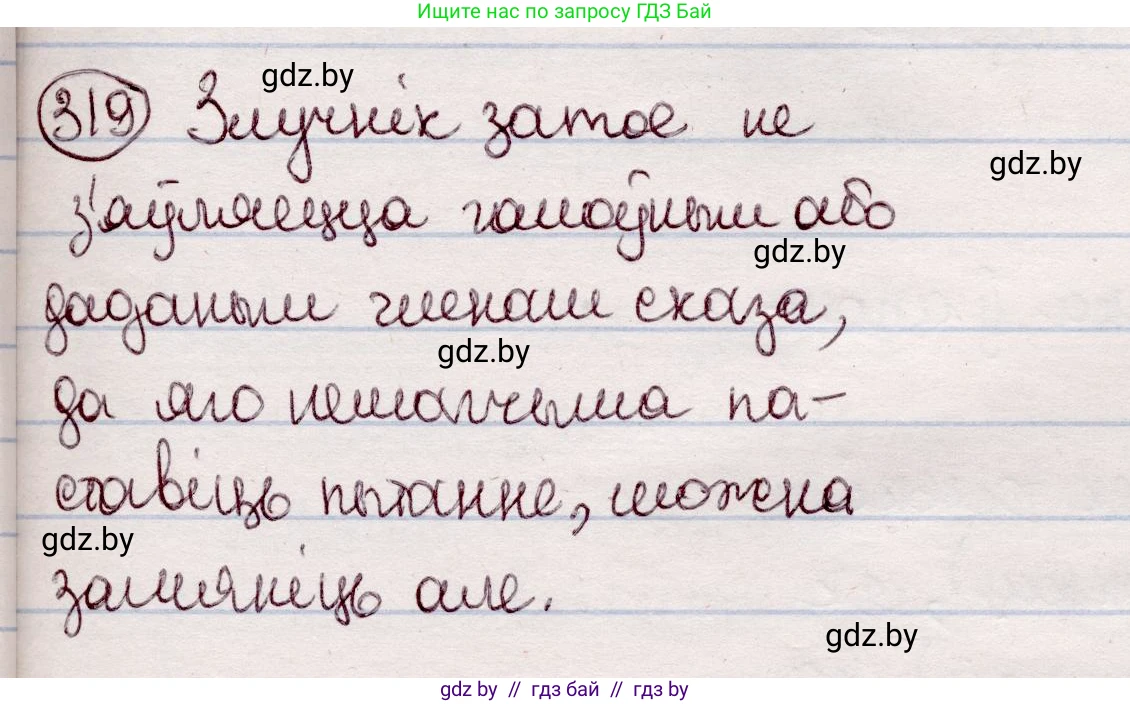 Ищите нас по запросу ГДЗ Бай
gdz.by
319 Злучнік затое не
gdz.by
з'аўляецца галоўным або
gdz.by
даданым членам сказа,
gdz.by
да яго немагчыма па-
ставіць пытанне, можна
gdz.by
замяніць але.
gdz.by
gdz by // гдз бай // гдз by